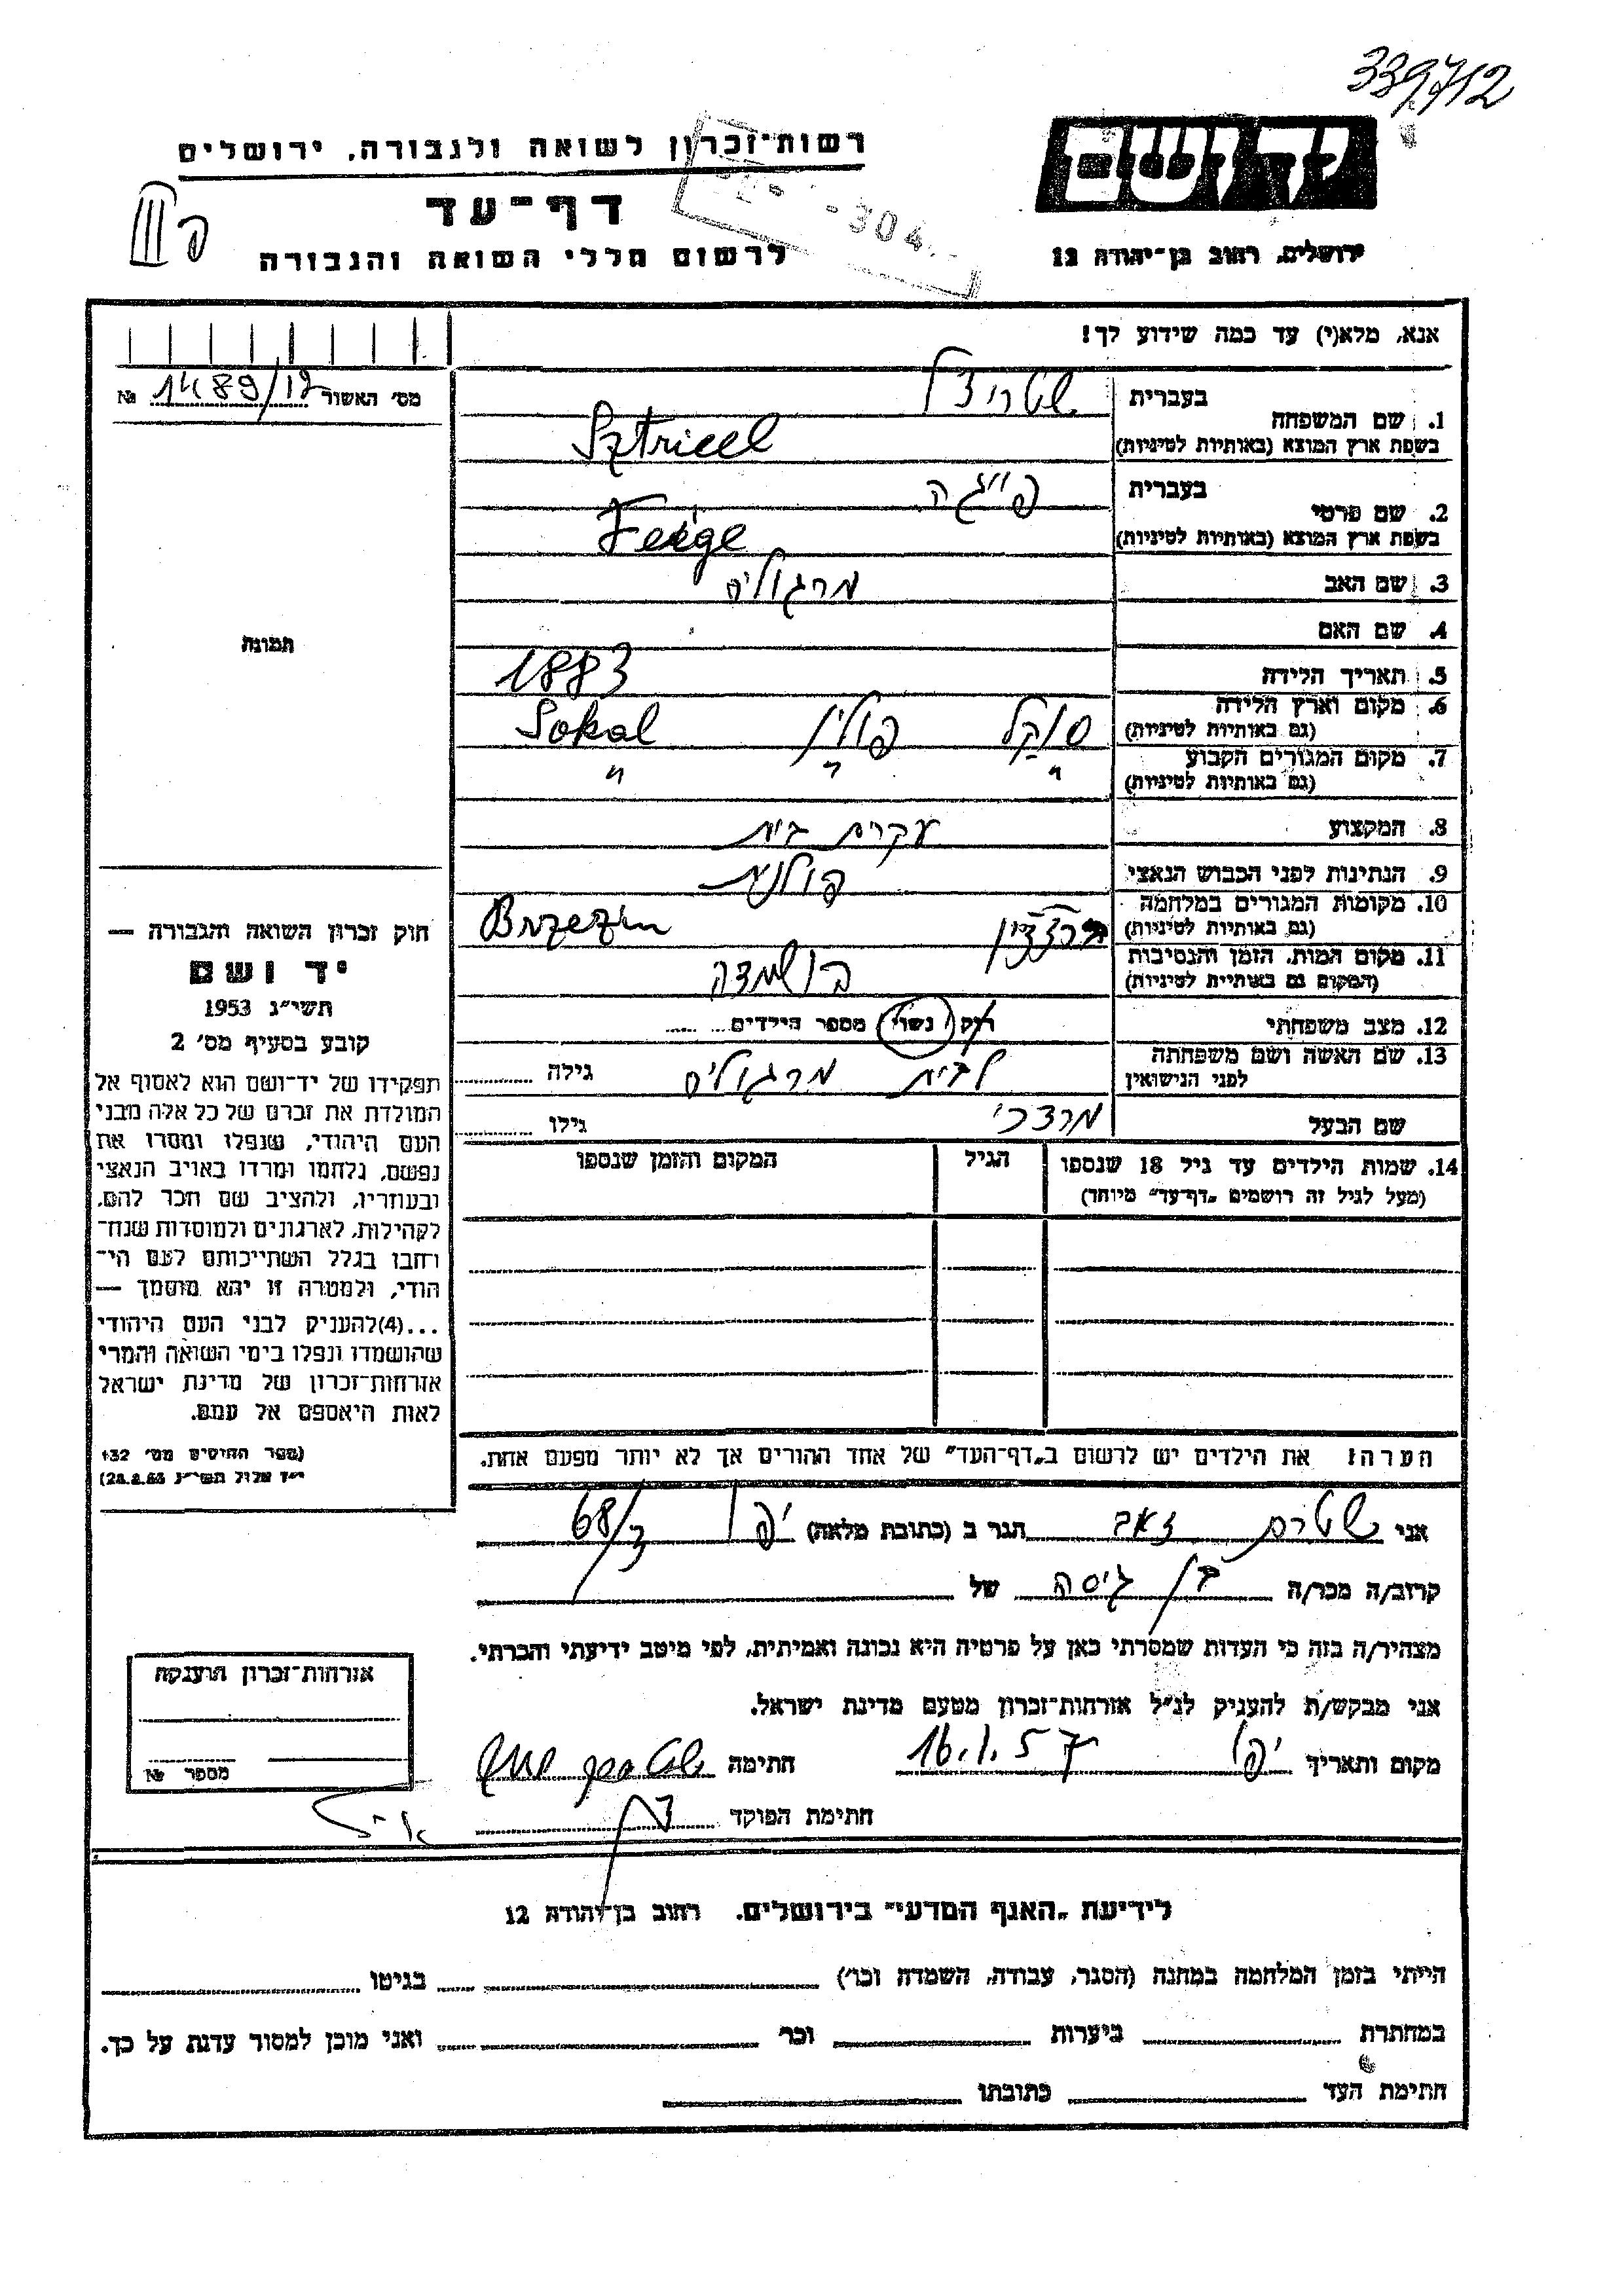 339712
יד ושם
ירושלים, רחוב בן־יהודה 12
רשות־זכרון לשואה ולגבורה, ירושלים
דף־עד
לרשום חללי השואה והגבורה
304
פ
אנא, מלא(י) עד כמה שידוע לך!
מס׳ האשור № 1489/12
1. שם המשפחה
בעברית שטריצל
בשפת ארץ המוצא (באותיות לטיניות) Sztricel
2. שם פרטי
בעברית פייגה
בשפת ארץ המוצא (באותיות לטיניות) Feige
3. שם האב מרגוליס
4. שם האם
5. תאריך הלידה 1883
6. מקום וארץ הלידה
(גם באותיות לטיניות) סוקל פולין Sokal
7. מקום המגורים הקבוע
(גם באותיות לטיניות) " " "
8. המקצוע עקרת בית
9. הנתינות לפני הכבוש הנאצי פולנית
10. מקומות המגורים במלחמה
(גם באותיות לטיניות) ברזזין Brzezin
11. מקום המות, הזמן והנסיבות
(המקום גם באותיית לטיניות) הושמדה
12. מצב משפחתי רוק/ נשוי/ מספר הילדים
13. שם האשה ושם משפחתה
לפני הנישואין לבית מרגוליס גילה
שם הבעל מרדכי גילו
14. שמות הילדים עד גיל 18 שנספו
(מעל לגיל זה רושמים „דף־עד״ מיוחד)
הגיל
המקום והזמן שנספו
הערה: את הילדים יש לרשום ב„דף־העד״ של אחד ההורים אך לא יותר מפעם אחת.
תמונה
חוק זכרון השואה והגבורה —
יד ושם
תשי״ג 1953
קובע בסעיף מס׳ 2
תפקידו של יד־ושם הוא לאסוף אל
המולדת את זכרם של כל אלה מבני
העם היהודי, שנפלו ומסרו את
נפשם, נלחמו ומרדו באויב הנאצי
ובעוזריו, ולהציב שם וזכר להם,
לקהילות, לארגונים ולמוסדות שנח־
רחבו בגלל השתייכותם לעם הי־
הודי, ולמטרה זו יהא מוסמך —
...(4)להעניק לבני העם היהודי
שהושמדו ונפלו בימי השואה והמרי
אזרחות־זכרון של מדינת ישראל
לאות היאספם אל עמם.
(ספר החוקים מס׳ 132
י״ז אלול תשי״ג 28.8.53)
אני שטרם זאב הגר ב (כתובת מלאה) יפו 68/ד
קרוב/ה מכר/ה בן גיסה של
מצהיר/ה בזה כי העדות שמסרתי כאן על פרטיה היא נכונה ואמיתית, לפי מיטב ידיעתי והכרתי.
אני מבקש/ת להעניק לנ״ל אזרחות־זכרון מטעם מדינת ישראל.
מקום ותאריך יפו 16.1.57 חתימה
חתימת הפוקד
אזרחות־זכרון הוענקה
מספר №
לידיעת „האגף המדעי״ בירושלים. רחוב בן־יהודה 12
הייתי בזמן המלחמה במחנה (הסגר, עבודה, השמדה וכו׳) בגיטו
במחתרת ביערות וכו׳ ואני מוכן למסור עדות על כך.
חתימת העד כתובתו